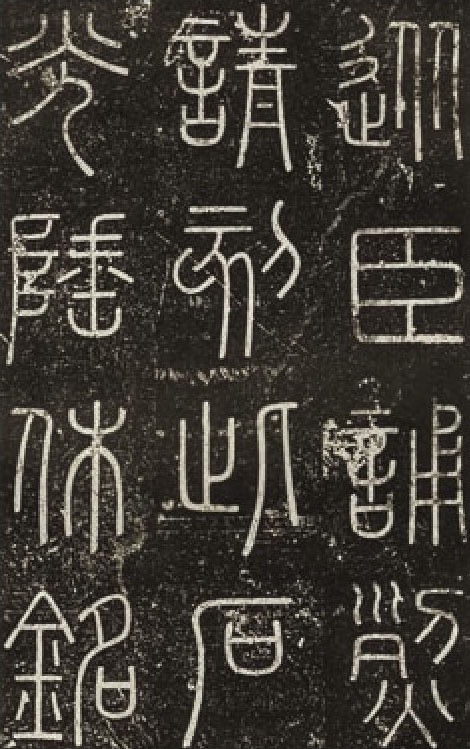 從臣誦烈
請刻此石
光陲休銘